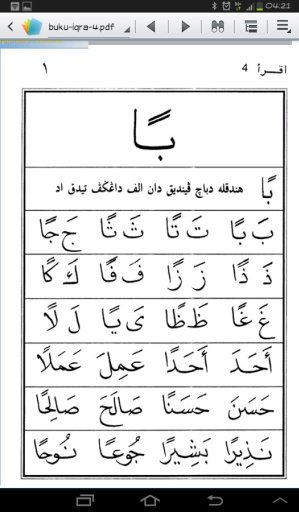 04:21
buku-iqra-4.pdf
اقرأ 4 ١
بًا
بًا هندقله دباچ ڤينديق دان الف داڠݢڤ تيدق اد
بَ بًا تَ تًا ثَ ثًا جَ جًا
ذَ ذًا زَ زًا فَ فًا كَ كًا
غَ غًا ظَ ظًا يَ يًا لَ لًا
أَحَدَ أَحَدًا عَمِلَ عَمَلًا
حَسَنَ حَسَنًا صَالِحَ صَالِحًا
نَذِيرًا بَشِيرًا جُوعًا نُوحًا